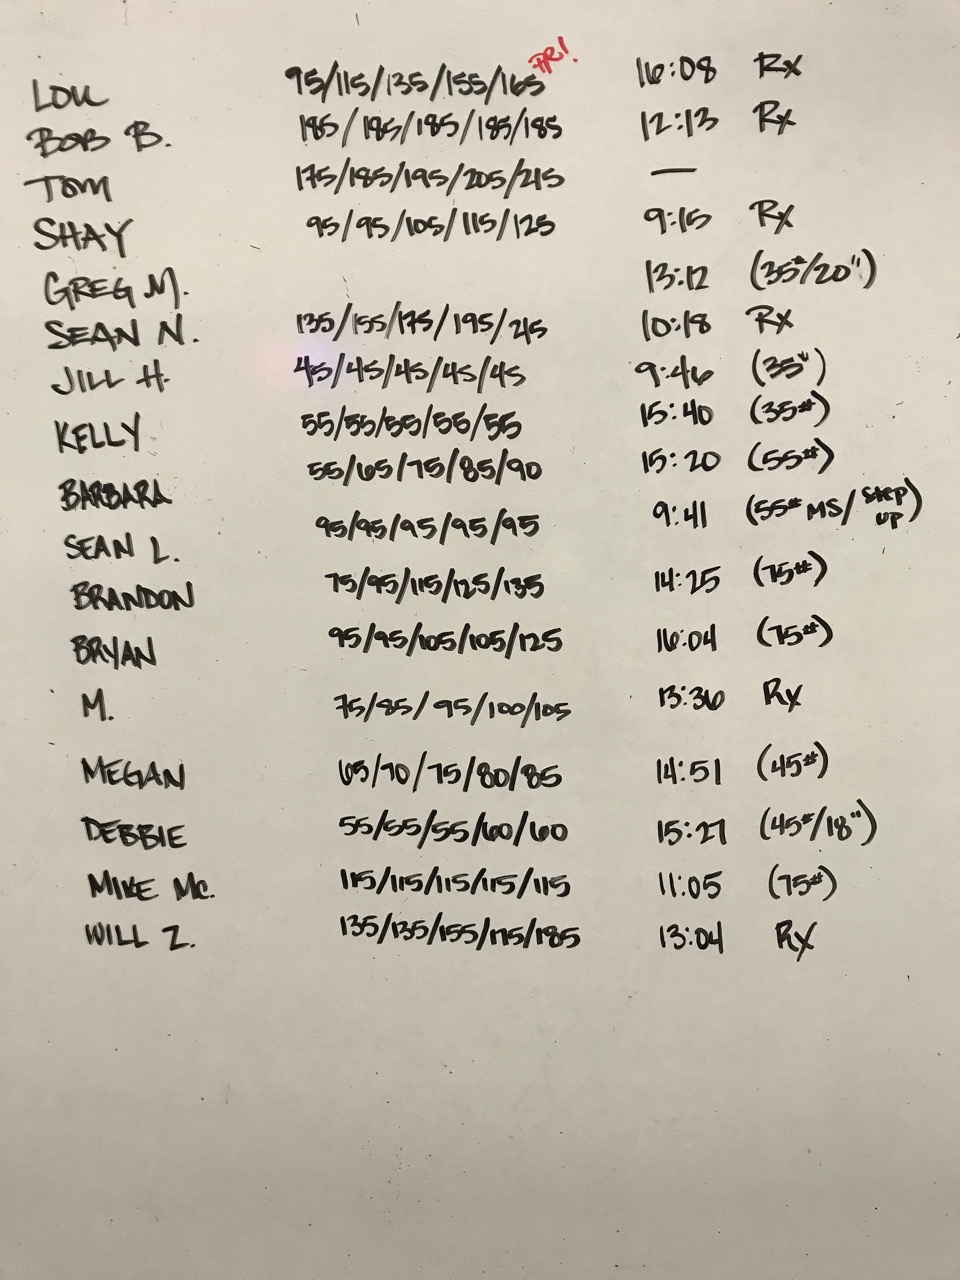 LOU 95/115/135/155/165 PR! 16:08 Rx
BOB B. 185/185/185/185/185 12:13 Rx
TOM 175/185/195/205/215 —
SHAY 95/95/105/115/125 9:15 Rx
GREG M. 13:12 (35#/20")
SEAN N. 135/155/175/195/215 10:18 Rx
JILL H. 45/45/45/45/45 9:46 (35#)
KELLY 55/55/55/55/55 15:40 (35#)
BARBARA 55/65/75/85/90 15:20 (55#)
SEAN L. 95/95/95/95/95 9:41 (55# MS/STEP UP)
BRANDON 75/95/115/125/135 14:25 (75#)
BRYAN 95/95/105/105/125 16:04 (75#)
M. 75/85/95/100/105 13:36 Rx
MEGAN 65/70/75/80/85 14:51 (45#)
DEBBIE 55/55/55/60/60 15:27 (45#/18")
MIKE Mc. 115/115/115/115/115 11:05 (75#)
WILL Z. 135/135/155/175/185 13:04 Rx